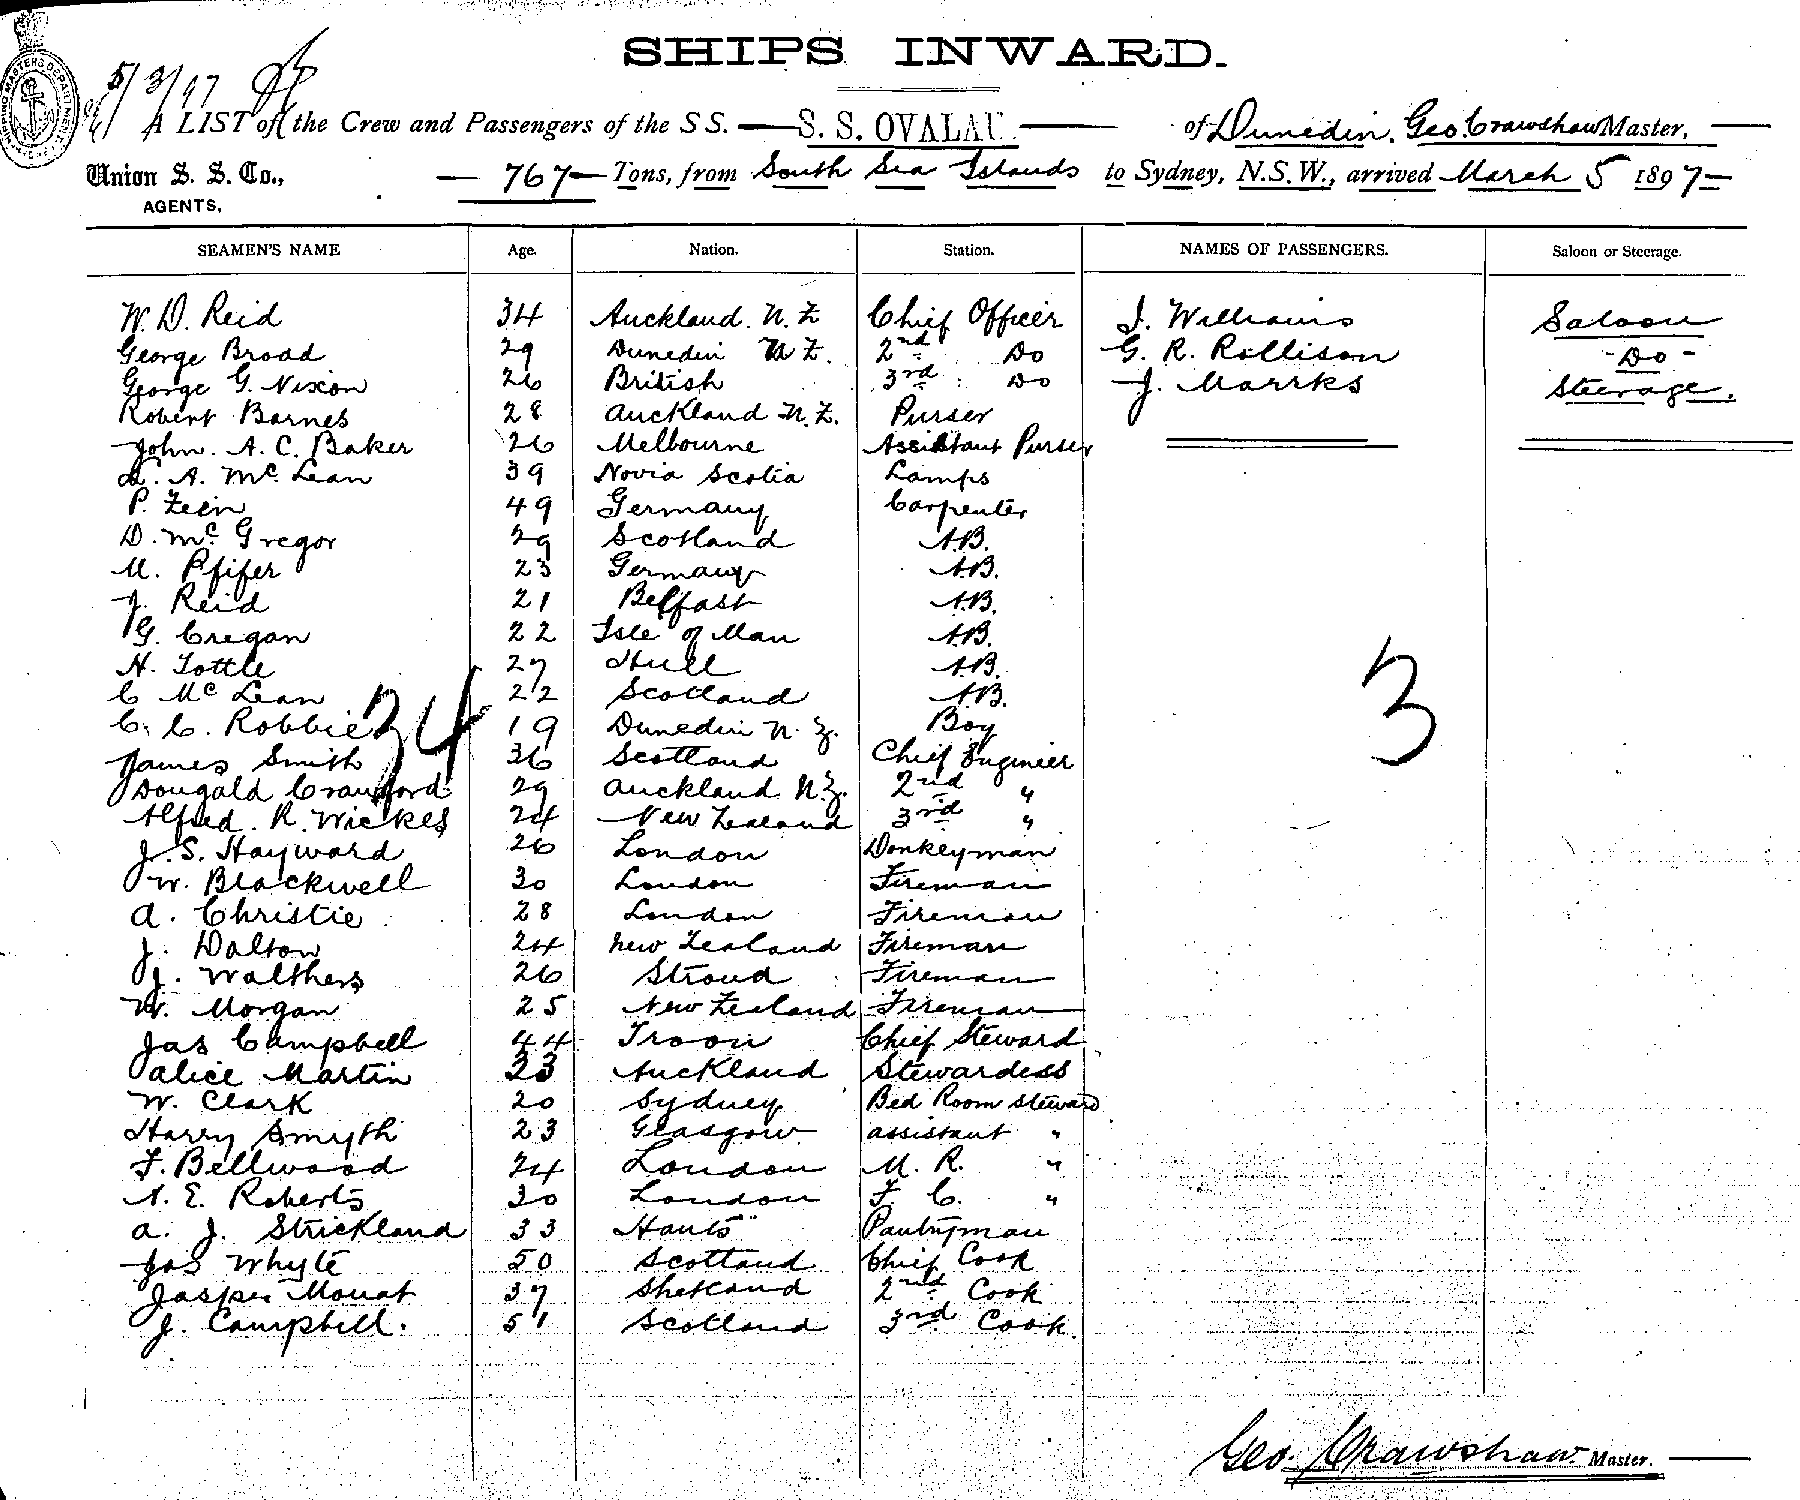 SHIPS INWARD.
5/3/97
A LIST of the Crew and Passengers of the S S. S. S. OVALAU of Dunedin, Geo. Crawshaw Master,
Union S. S. Co., 767 Tons, from South Sea Islands to Sydney, N.S.W., arrived March 5 1897
AGENTS,
SEAMEN'S NAME Age. Nation. Station. NAMES OF PASSENGERS. Saloon or Steerage.
W. D. Reid 34 Auckland. N. Z Chief Officer J. Williams Saloon
George Broad 29 Dunedin N Z. 2nd Do G. R. Rollison - Do -
George G. Nixon 26 British 3rd Do J. Marrks Steerage.
Robert Barnes 28 Auckland N. Z. Purser
John. A. C. Baker 26 Melbourne Assistant Purser
L. A. Mc Lean 39 Novia Scotia Lamps
P. Zein 49 Germany Carpenter
D. Mc Gregor 29 Scotland A.B.
M. Pfifer 23 Germany A.B.
J. Reid 21 Belfast A.B.
G. Cregan 22 Isle of Man A.B.
H. Tottle 27 Hull A.B.
C Mc Lean 22 Scotland A.B.
C. C. Robbie 19 Dunedin N. Z. Boy
34
3
James Smith 36 Scotland Chief Engineer
Dougald Crawford 29 Auckland N.Z. 2nd "
Alfred. R. Wickes 24 New Zealand 3rd "
J. S. Hayward 26 London Donkeyman
W. Blackwell 30 London Fireman
A. Christie 28 London Fireman
J. Dalton 24 New Zealand Fireman
J. Walthers 26 Stroud Fireman
W. Morgan 25 New Zealand Fireman
Jas Campbell 44 Troon Chief Steward
Alice Martin 33 Auckland Stewardess
W. Clark 20 Sydney Bed Room Steward
Harry Smyth 23 Glasgow assistant "
F. Bellwood 24 London M. R. "
A. E. Roberts 30 London F. C. "
A. J. Strickland 33 Hants" Pantryman
Jas Whyte 50 Scotland Chief Cook
Jasper Mouat 37 Shetland 2nd Cook
J. Campbell. 51 Scotland 3rd Cook.
Geo. Crawshaw Master.